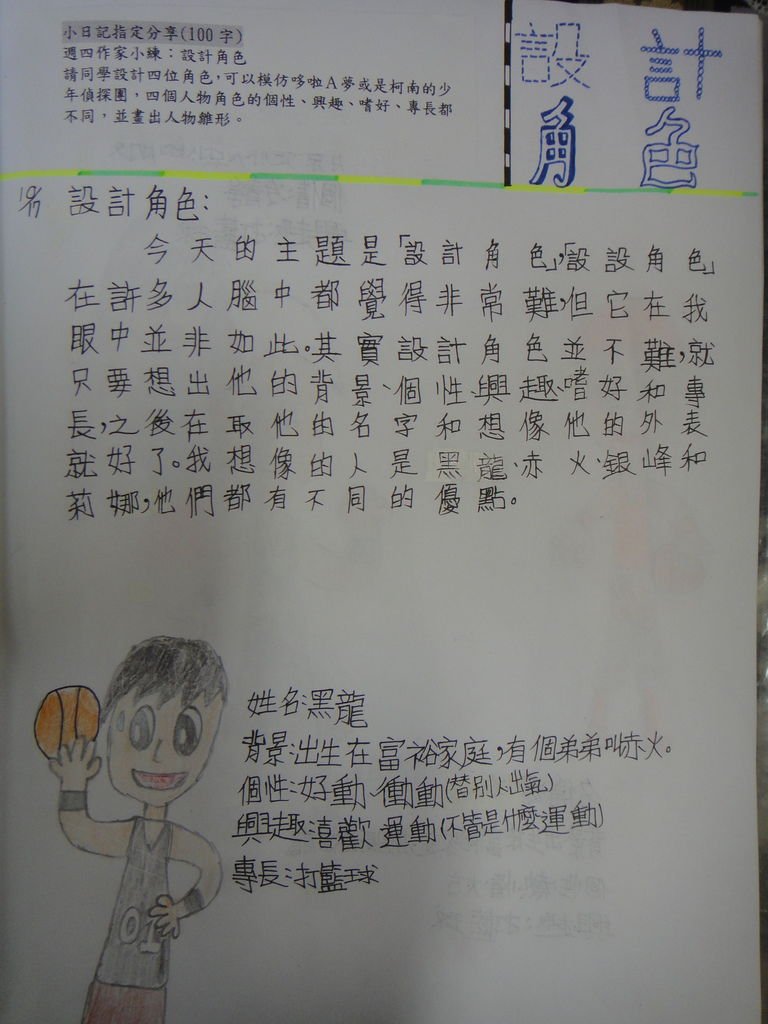 小日記指定分享(100字)
週四作家小練：設計角色
請同學設計四位角色，可以模仿哆啦A夢或是柯南的少
年偵探團，四個人物角色的個性、興趣、嗜好、專長都
不同，並畫出人物雛形。
設計
角色
設計角色：
今天的主題是「設計角色」，「設設角色」
在許多人腦中都覺得非常難，但它在我
眼中並非如此。其實設計角色並不難，就
只要想出他的背景、個性、興趣、嗜好和專
長，之後在取他的名字和想像他的外表
就好了。我想像的人是黑龍、赤火、銀峰和
莉娜，他們都有不同的優點。
姓名：黑龍
背景：出生在富裕家庭，有個弟弟叫赤火。
個性：好動、衝動(替別人出氣)
興趣：喜歡運動(不管是什麼運動)
專長：打籃球
01